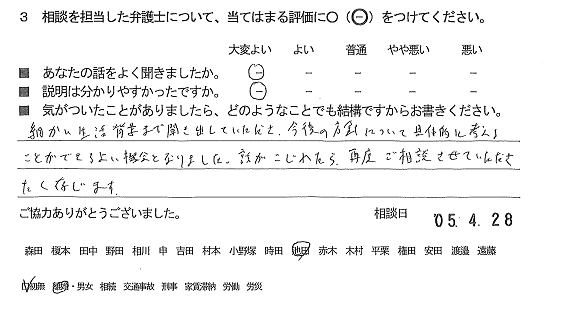 3 相談を担当した弁護士について、当てはまる評価に○（⊖）をつけてください。
大変よい よい 普通 やや悪い 悪い
■ あなたの話をよく聞きましたか。 － － － － －
■ 説明は分かりやすかったですか。 － － － － －
■ 気がついたことがありましたら、どのようなことでも結構ですからお書きください。
細かい生活背景まで聞き出していただき、今後の方針について具体的に考える
ことができるよい機会となりました。話がこじれたら、再度ご相談させていただき
たく存じます。
ご協力ありがとうございました。 相談日 '05. 4. 28
森田 榎本 田中 野田 相川 申 吉田 村本 小野塚 時田 池田 赤木 木村 平栗 権田 安田 渡邉 遠藤
・男女 相続 交通事故 刑事 家賃滞納 労働 労災